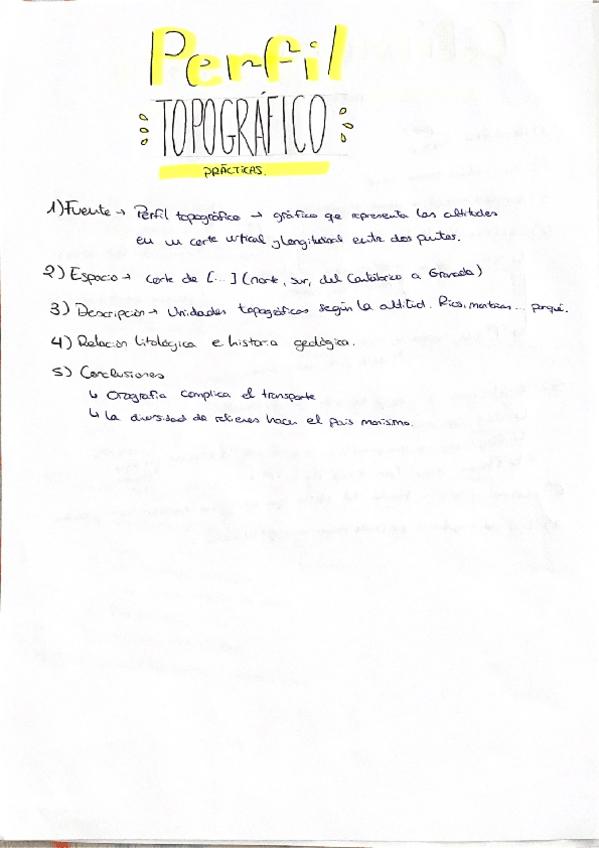 Perfil
TOPOGRÁFICO
PRÁCTICAS.
1) Fuente → Perfil topográfico → gráfico que representa las altitudes
en un corte vertical y longitudinal entre dos puntos.
2) Espacio → corte de [...] (norte, sur, del Cantábrico a Granada)
3) Descripción → Unidades topográficas según la altitud. Ríos, montañas... porqué.
4) Relación litológica e historia geológica.
5) Conclusiones
↳ Orografía complica el transporte
↳ La diversidad de relieves hacen el país